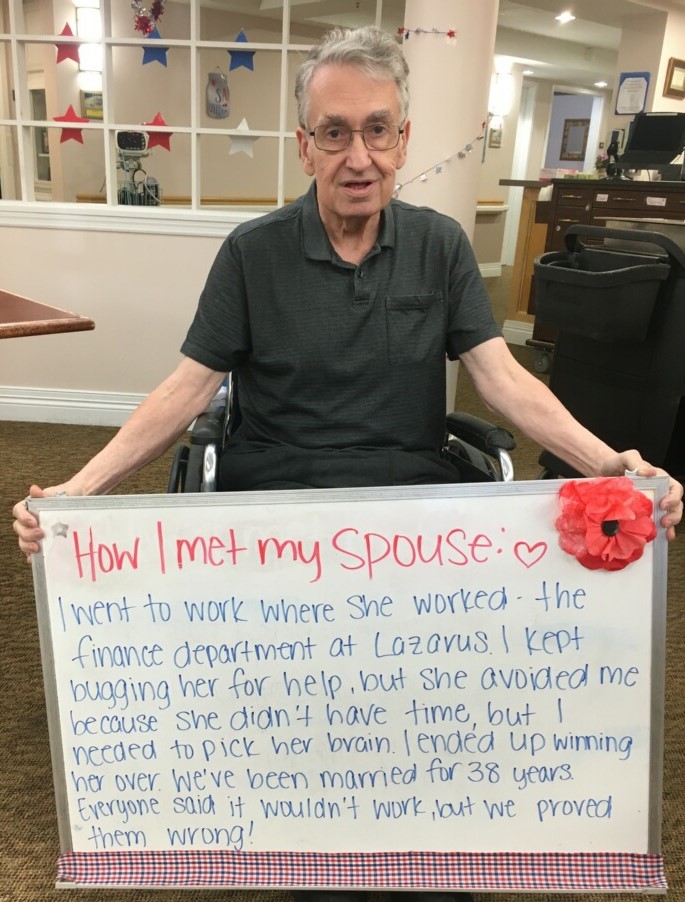 How I met my spouse: ♡
I went to work where she worked - the
finance department at Lazarus. I kept
bugging her for help, but she avoided me
because she didn't have time, but I
needed to pick her brain. I ended up winning
her over. We've been married for 38 years.
Everyone said it wouldn't work, but we proved
them wrong!